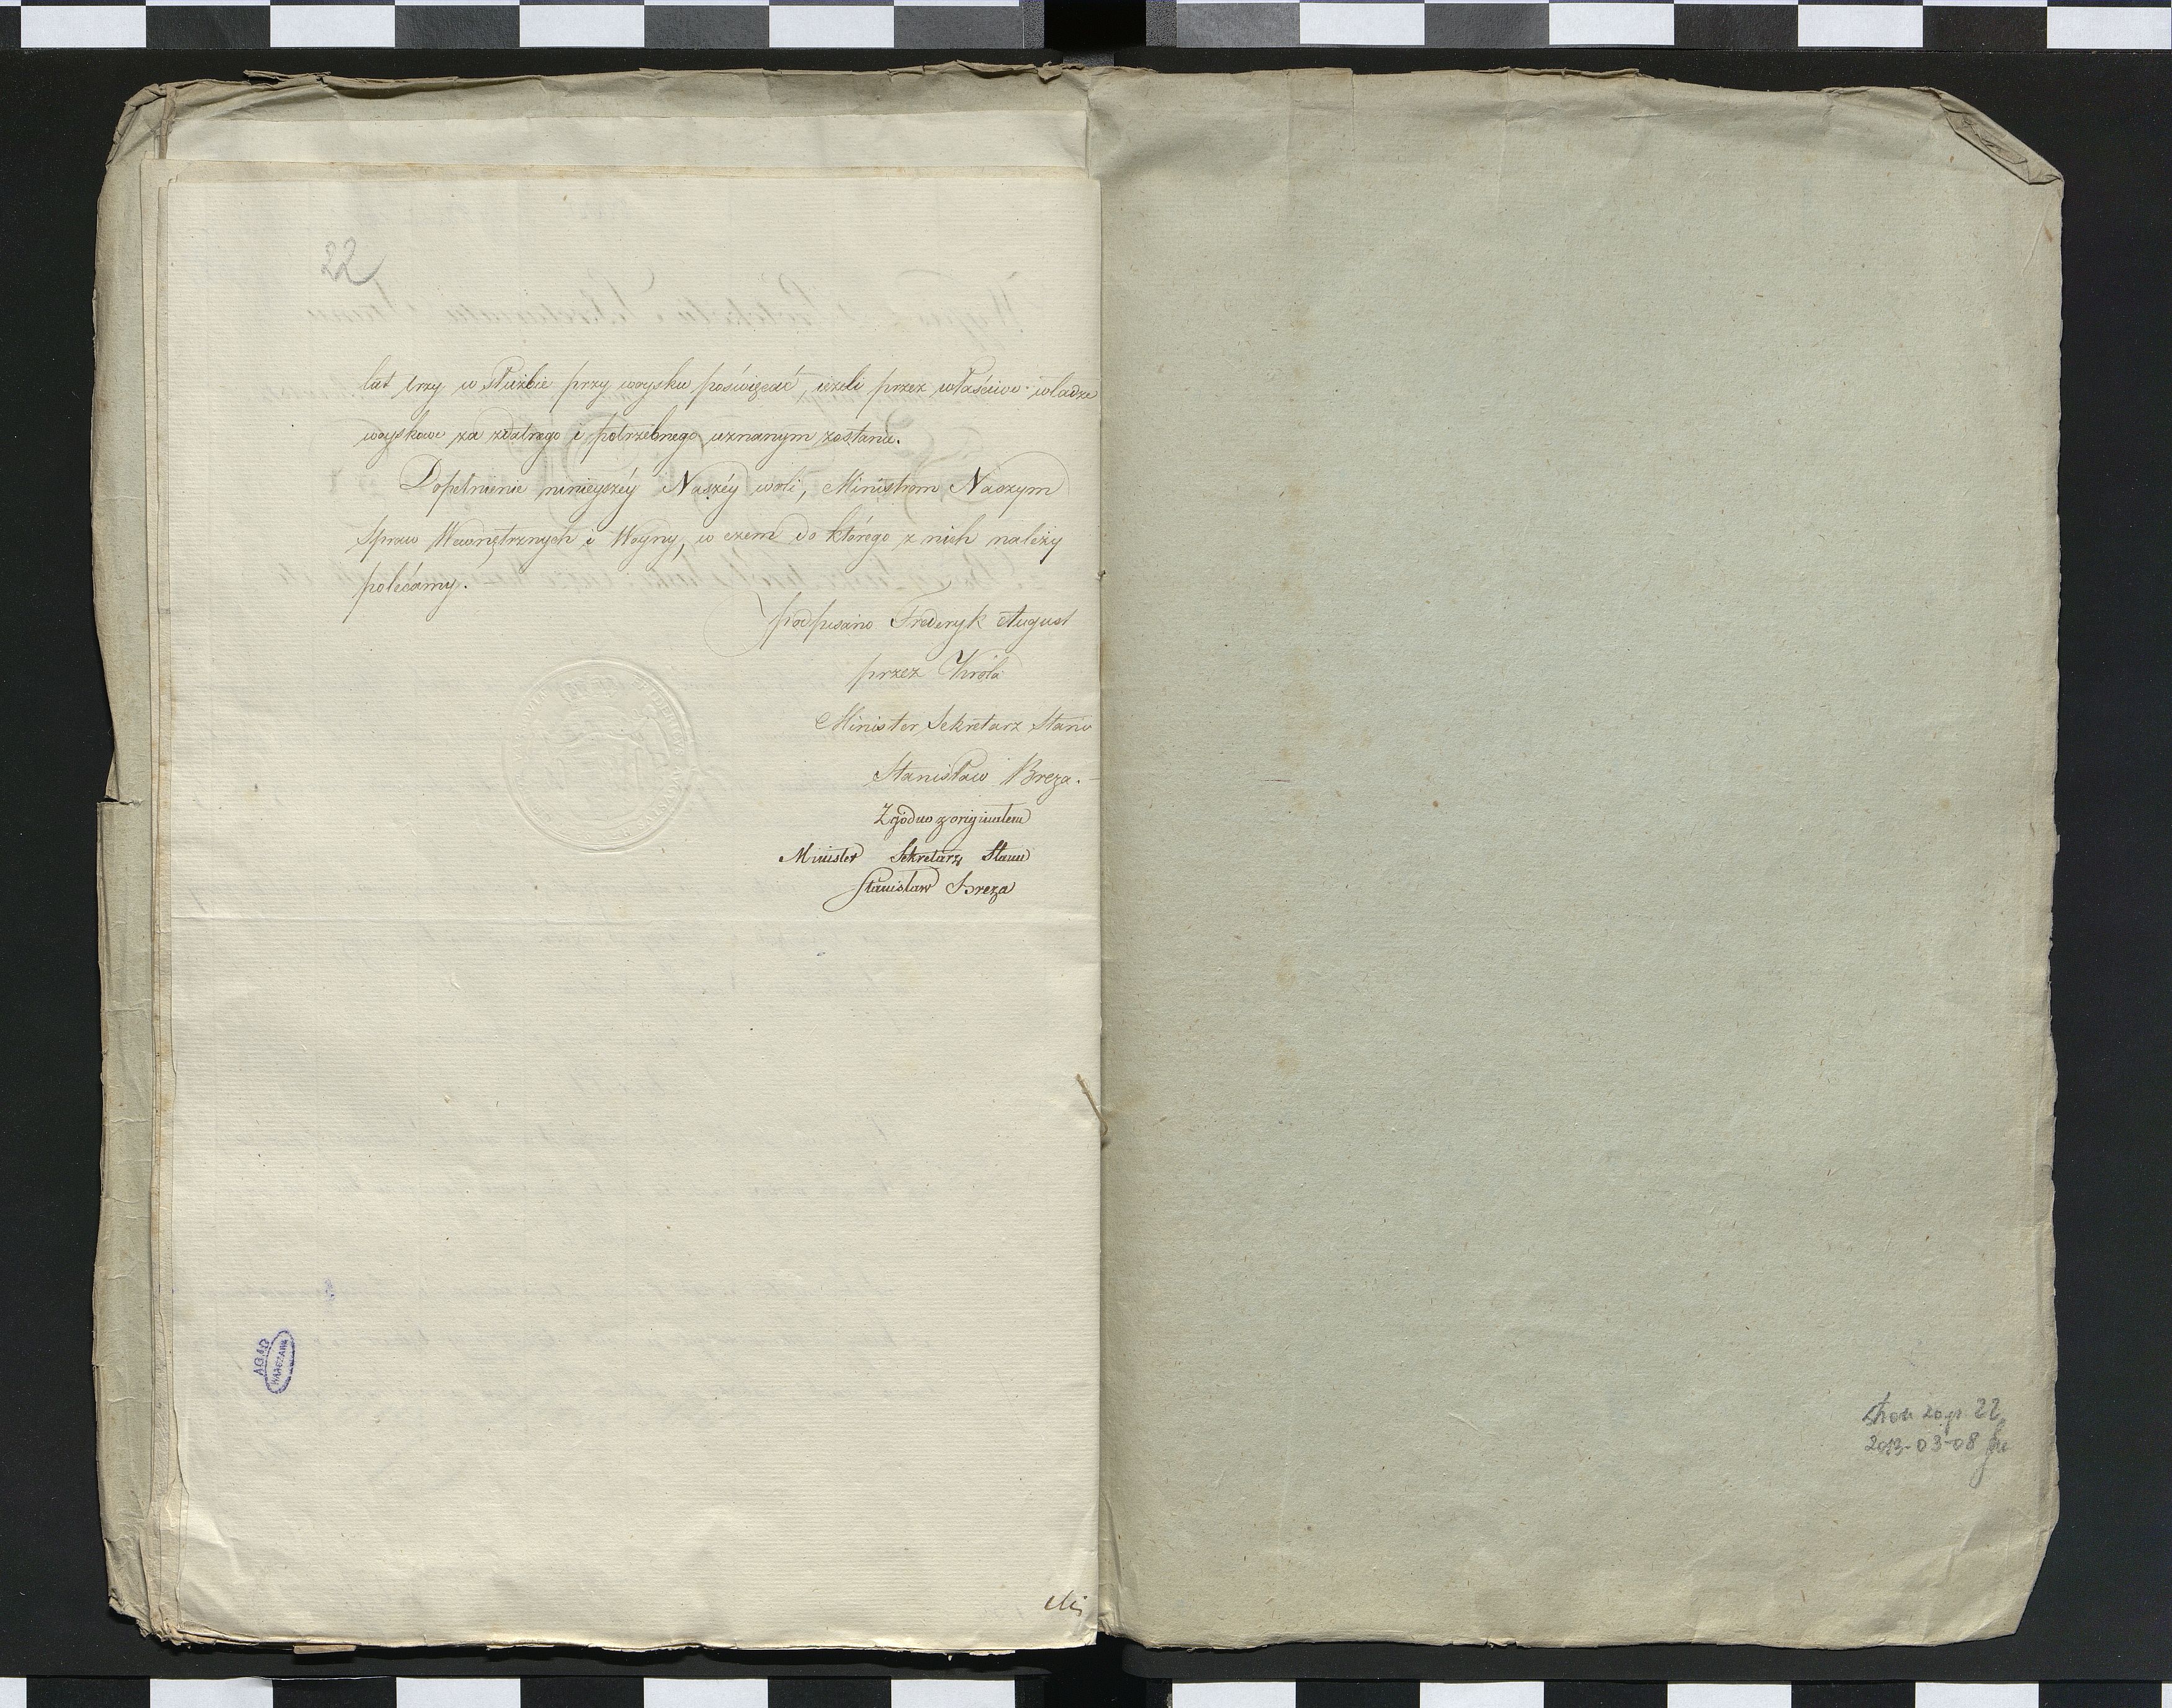 22
lat trzy w służbie przy woysku poświęcać, ieżeli przez właściwe władze
woyskowe za zdatnego i potrzebnego uznanym zostanie.
Dopełnienie ninieyszéy Naszéy woli, Ministrom Naszym
Spraw Wewnętrznych i Woyny, w czem do którego z nich należy
polecamy.
podpisano Frederyk August
przez Króla
Minister Sekretarz Stanu
Stanisław Breza.
Zgodno z originałem
Minister Sekretarz Stanu
Stanisław Breza
AGAD
WARSZAWA
22
2013-03-08